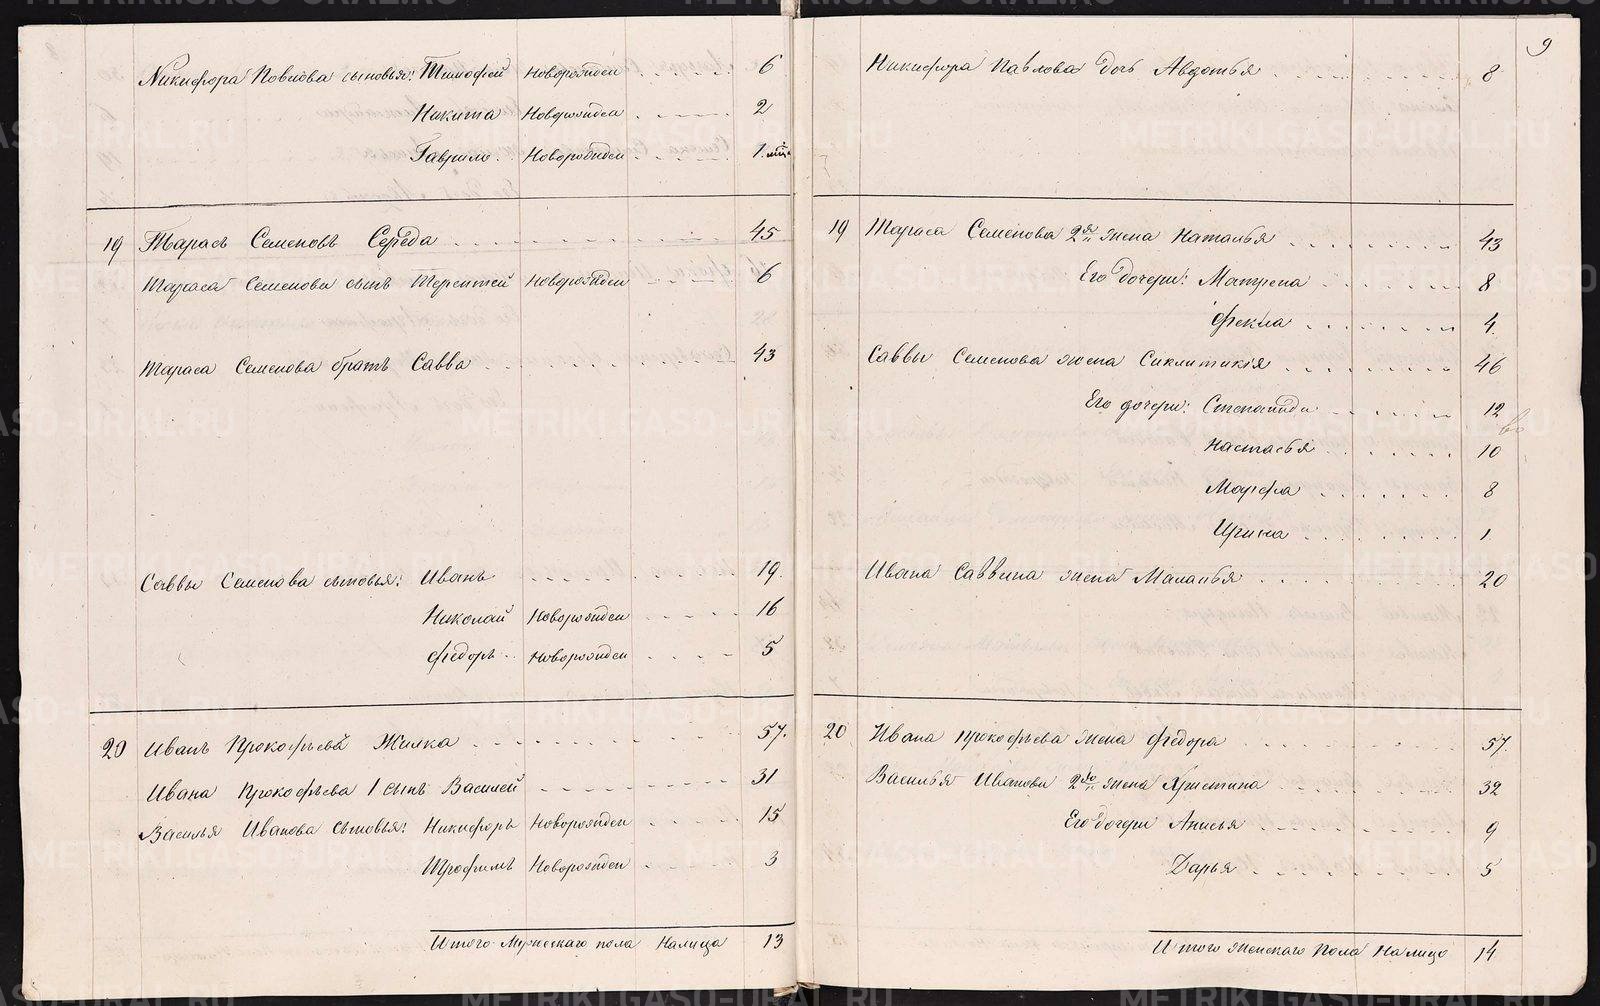 Никифора Павлова сыновья: Тимофей новорожден . . . . 6
Никита новорожден . . . . 2
Гаврило . новорожден . . . . 1. мѣц.
19 Тарасъ Семеновъ Середа . . . . 45
Тараса Семенова сынъ Терентей новорожден . . . . 6
Тараса Семенова братъ Савва . . . . 43
Саввы Семенова сыновья: Иванъ . . . . 19.
Николай новорожден . . . . 16
Федоръ . . новорожден . . . . 5
20 Иванъ Прокофьевъ Жилка . . . . 57.
Ивана Прокофьева 1 сынъ Василей . . . . 31
Василья Иванова сыновья: Никифоръ новорожден . . . . 15
Трофимъ новорожден . . . . 3
Итого Мужескаго пола налицо 13
9
Никифора Павлова дочь Авдотья . . . . 8
19 Тараса Семенова 2я жена Наталья . . . . 43
Его дочери: Матрена . . . . 8
Фекла . . . . 4.
Саввы Семенова жена Сиклитикія . . . . 46
Его дочери: Степанида . . . . 12
Настасья . . . . 10
Марфа . . . . 8
Ирина . . . . 1
Ивана Саввина жена Маланья . . . . 20
20 Ивана Прокофьева жена Федора . . . . 57.
Василья Иванова 2ю жена Христина . . . . 32
Его дочери Анисья . . . . 9
Дарья . . . . 5
Итого женскаго пола налицо 14
METRIKI.GASO-URAL.RU